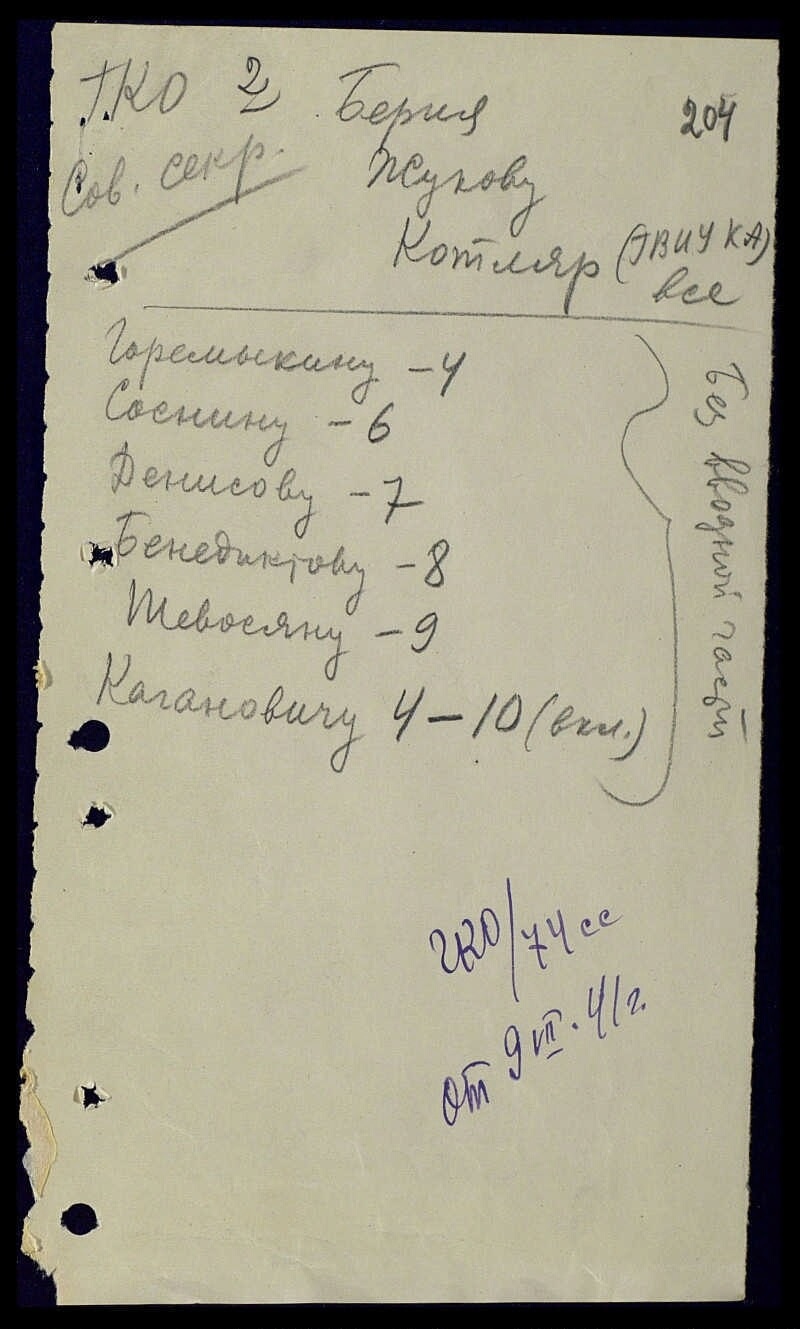 ГКО 2 Берия
204
Сов. секр. Жукову
Котляр (ГВИУКА)
все
Горемыкину – 4
Соснину – 6
Денисову – 7
Бенедиктову – 8
Тевосяну – 9
Кагановичу 4 – 10 (вкл.)
Без вводной части
ГКО/74сс
от 9 VII. 41 г.